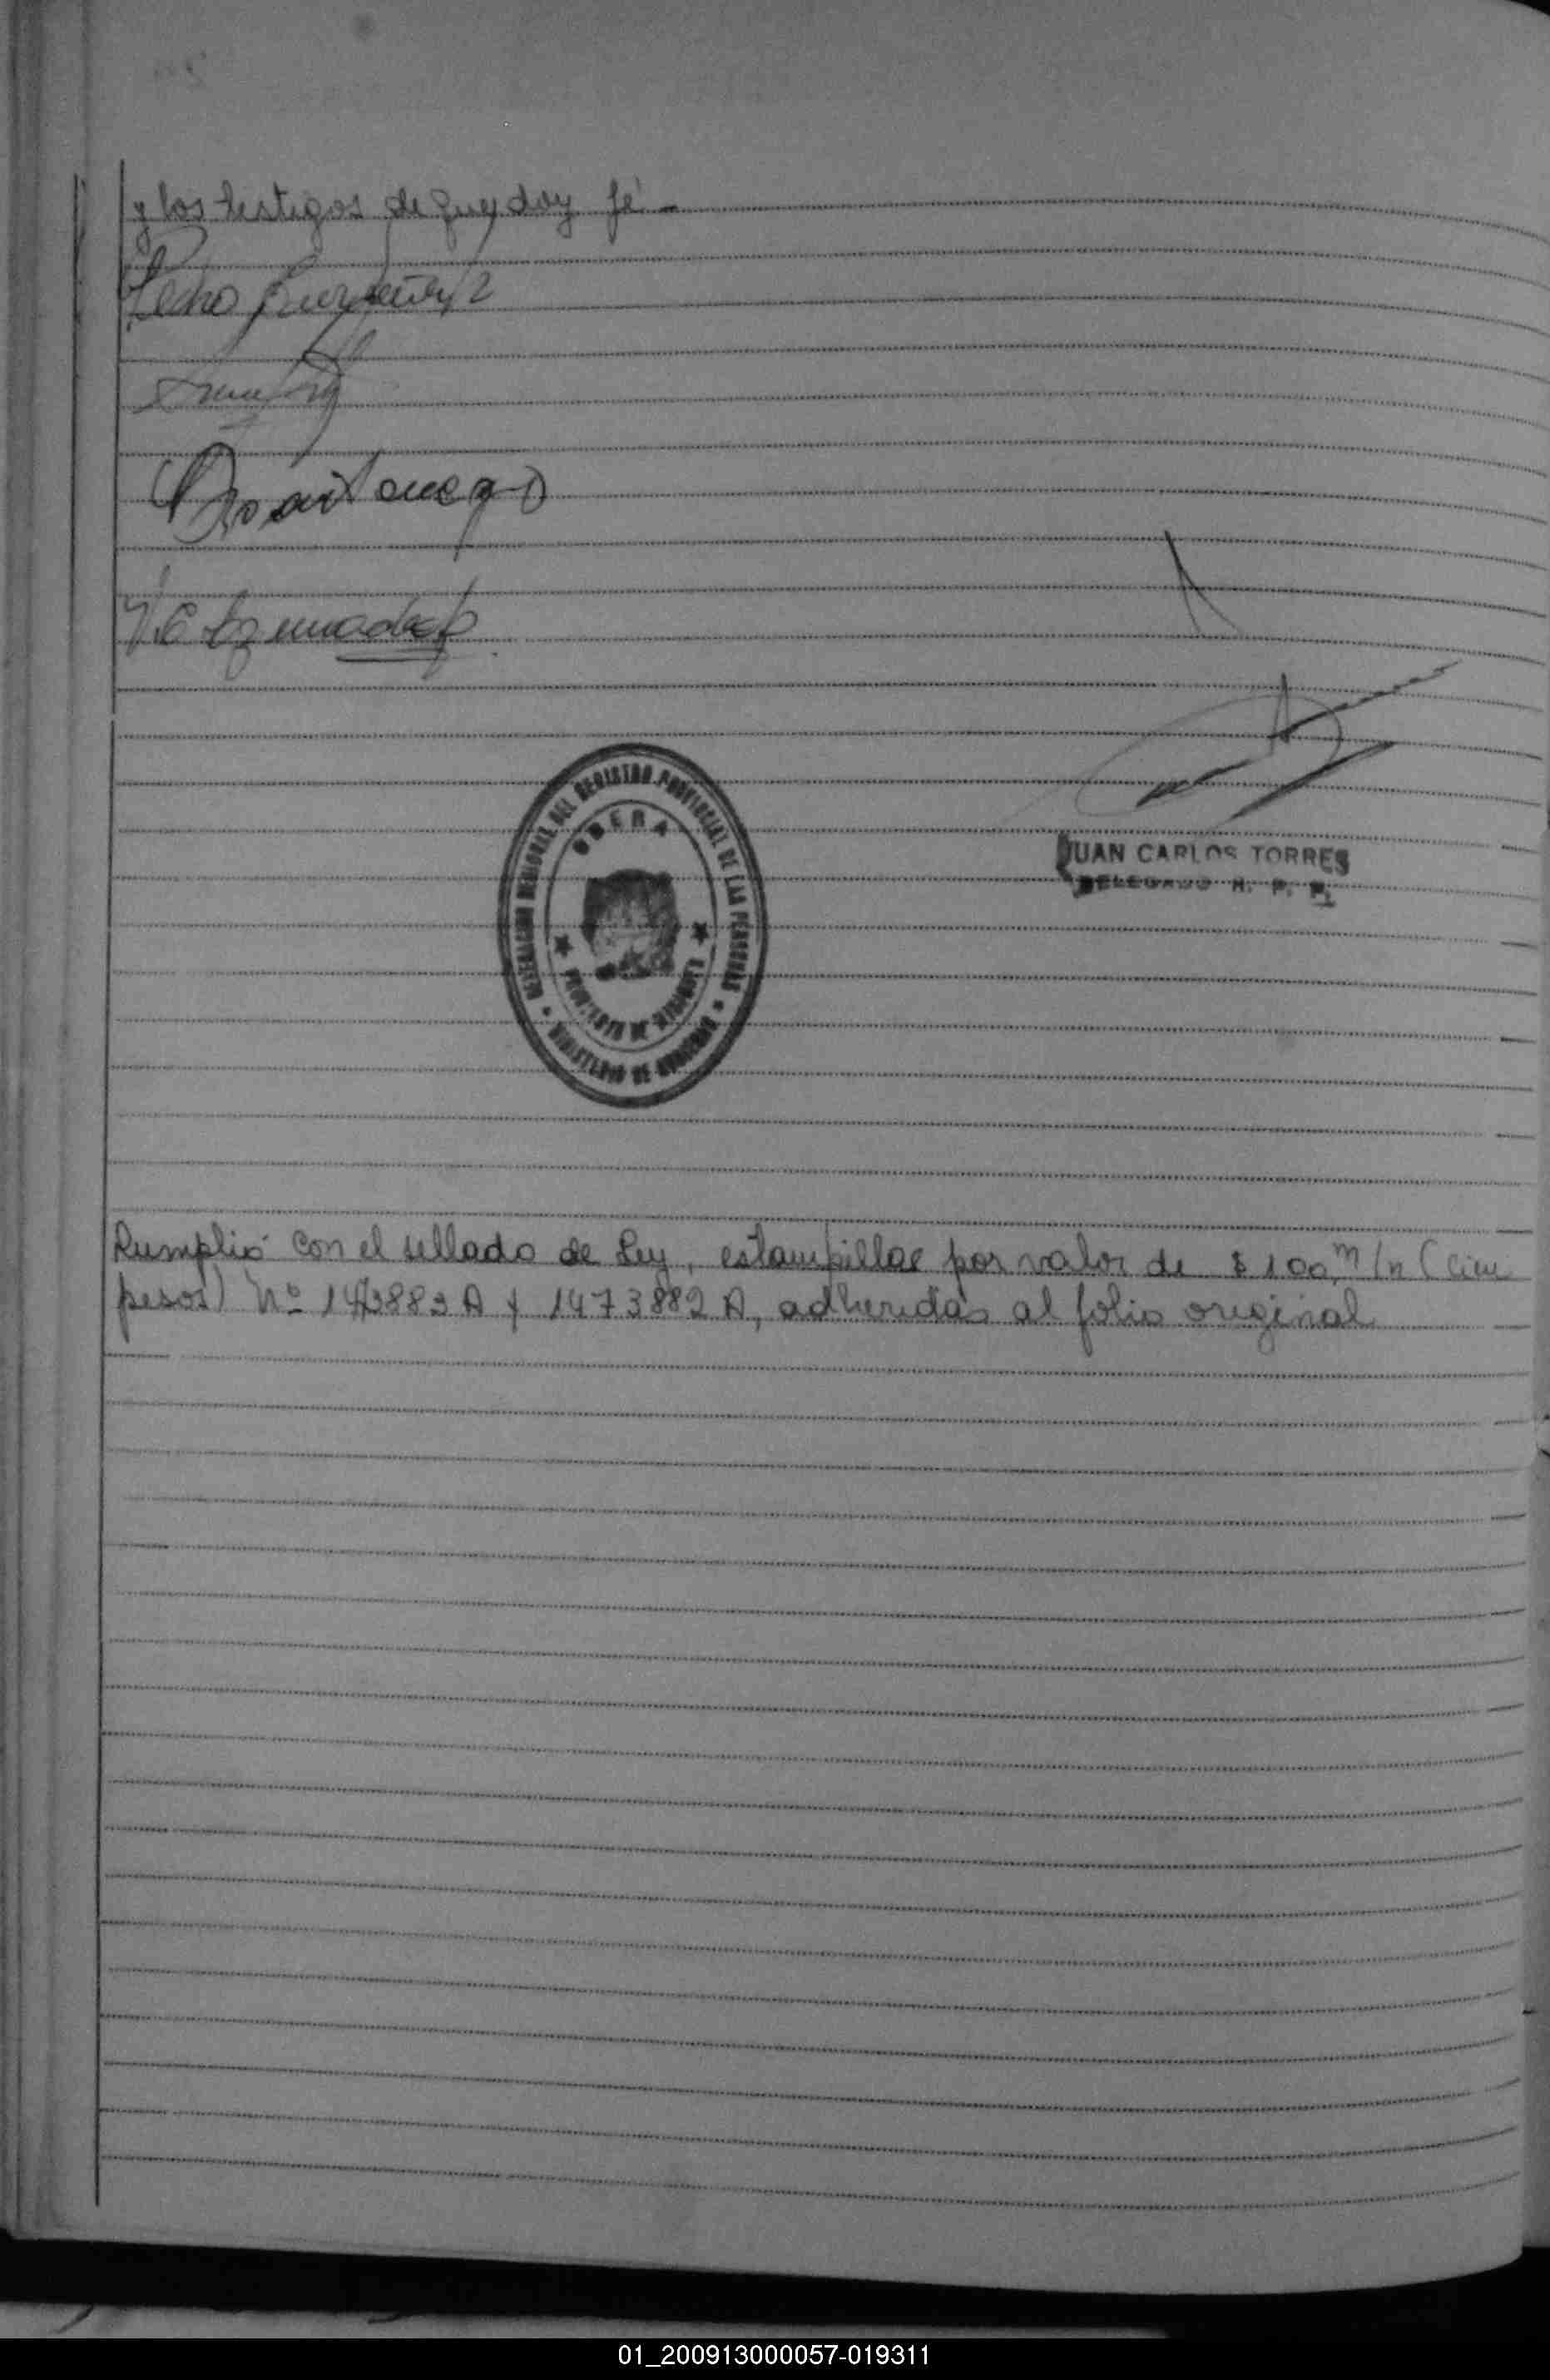 y los testigos de que doy fé -
Pedro
DELEGACION REGIONAL DEL REGISTRO PROVINCIAL DE LAS PERSONAS
OBERA
PROVINCIA DE MISIONES
MINISTERIO DE GOBIERNO
JUAN CARLOS TORRES
DELEGADO R. P. P.
Cumplió con el sellado de Ley, estampillas por valor de $ 100 m/n (cien
pesos) Nº 1473883 A y 1473882 A, adheridas al folio original
01_200913000057-019311